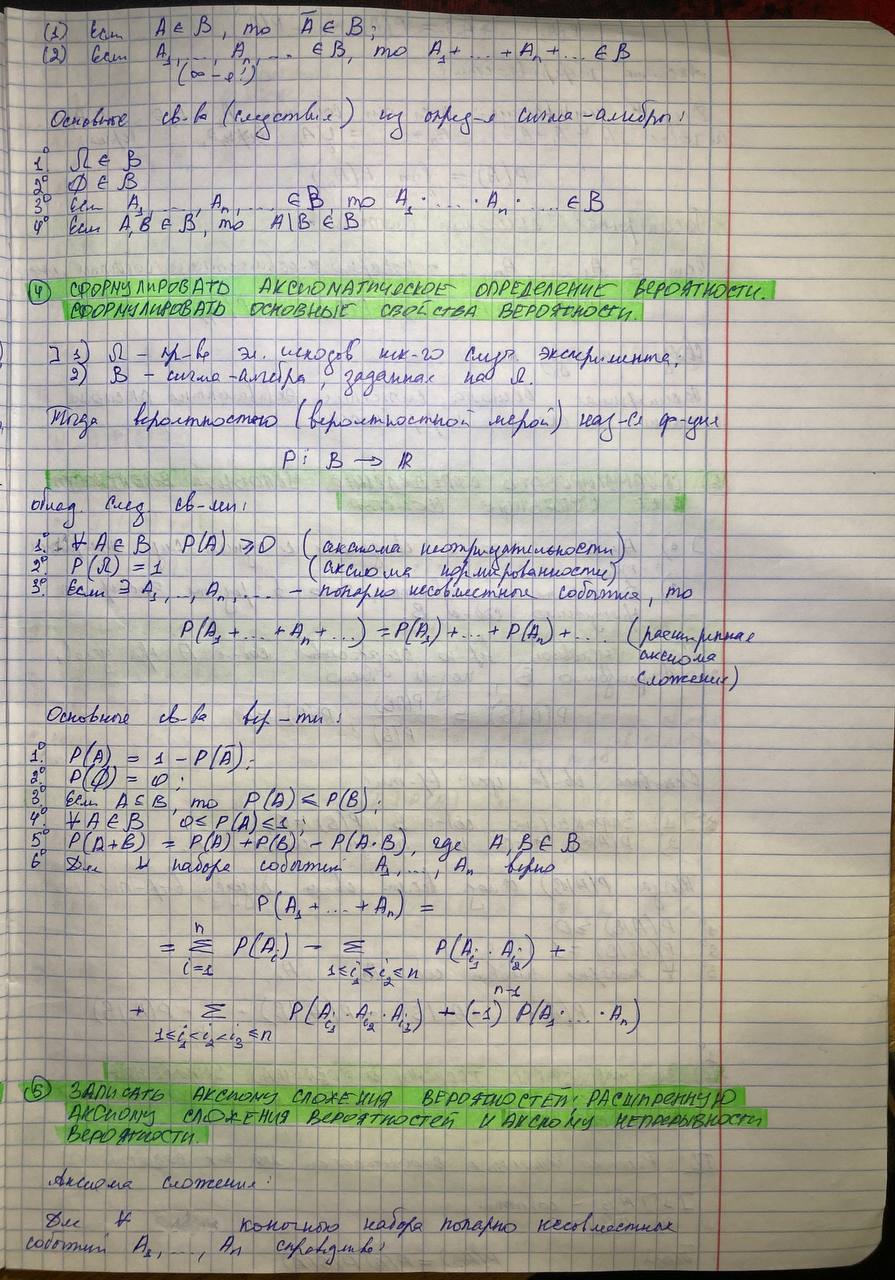 (1) Если A ∈ B, то Ā ∈ B;
(2) Если A₁, ..., Aₙ, ... ∈ B, то A₁ + ... + Aₙ + ... ∈ B
(∞-е!)
Основные св-ва (следствия) из опред-я сигма-алгебры:
1° Ω ∈ B
2° ∅ ∈ B
3° Если A₁, ..., Aₙ, ... ∈ B, то A₁ · ... · Aₙ · ... ∈ B
4° Если A, B ∈ B, то A\B ∈ B
④ СФОРМУЛИРОВАТЬ АКСИОМАТИЧЕСКОЕ ОПРЕДЕЛЕНИЕ ВЕРОЯТНОСТИ.
СФОРМУЛИРОВАТЬ ОСНОВНЫЕ СВОЙСТВА ВЕРОЯТНОСТИ.
∃ 1) Ω – пр-во эл. исходов нек-го случ. эксперимента;
2) B – сигма-алгебра, заданная на Ω.
Тогда вероятностью (вероятностной мерой) наз-ся ф-ция
P: B → ℝ
облад. след. св-ми:
1° ∀ A ∈ B P(A) ⩾ 0 (аксиома неотрицательности)
2° P(Ω) = 1 (аксиома нормированности)
3° Если ∃ A₁, ..., Aₙ, ... – попарно несовместные события, то
P(A₁ + ... + Aₙ + ...) = P(A₁) + ... + P(Aₙ) + ... (расширенная
аксиома
сложения)
Основные св-ва вер-ти:
1° P(A) = 1 – P(Ā);
2° P(∅) = 0;
3° Если A ⊆ B, то P(A) ≤ P(B);
4° ∀ A ∈ B 0 ≤ P(A) ≤ 1;
5° P(A+B) = P(A) + P(B) – P(A·B), где A, B ∈ B
6° Для ∀ набора событий A₁, ..., Aₙ верно
P(A₁ + ... + Aₙ) =
= Σ_{i=1}^{n} P(Aᵢ) – Σ_{1≤i₁<i₂≤n} P(A_{i₁} · A_{i₂}) +
+ Σ_{1≤i₁<i₂<i₃≤n} P(A_{i₁} · A_{i₂} · A_{i₃}) + (-1)^{n-1} P(A₁ · ... · Aₙ)
⑤ ЗАПИСАТЬ АКСИОМУ СЛОЖЕНИЯ ВЕРОЯТНОСТЕЙ, РАСШИРЕННУЮ
АКСИОМУ СЛОЖЕНИЯ ВЕРОЯТНОСТЕЙ И АКСИОМУ НЕПРЕРЫВНОСТИ
ВЕРОЯТНОСТИ.
Аксиома сложения:
Для ∀ конечного набора попарно несовместных
событий A₁, ..., Aₙ справедливо: